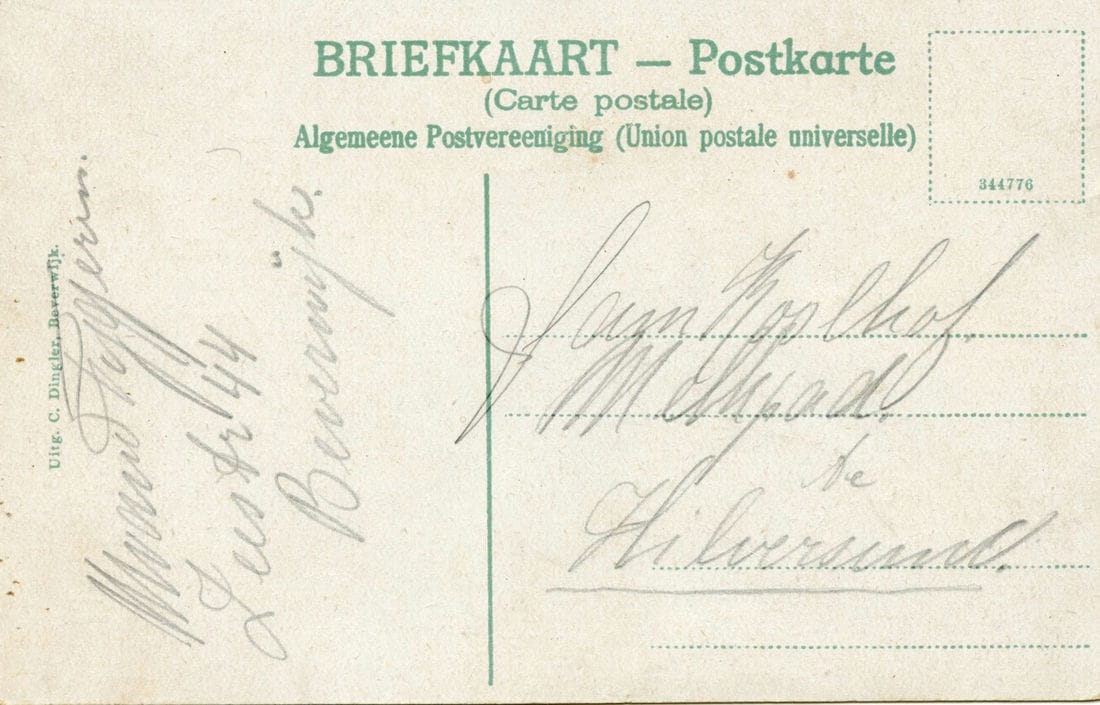 BRIEFKAART — Postkarte
(Carte postale)
Algemeene Postvereeniging (Union postale universelle)
344776
Uitg. C. Dingler, Beverwijk.
Zeestr 44
Beverwijk.
Koolhof.
Melkpad
te
Hilversum